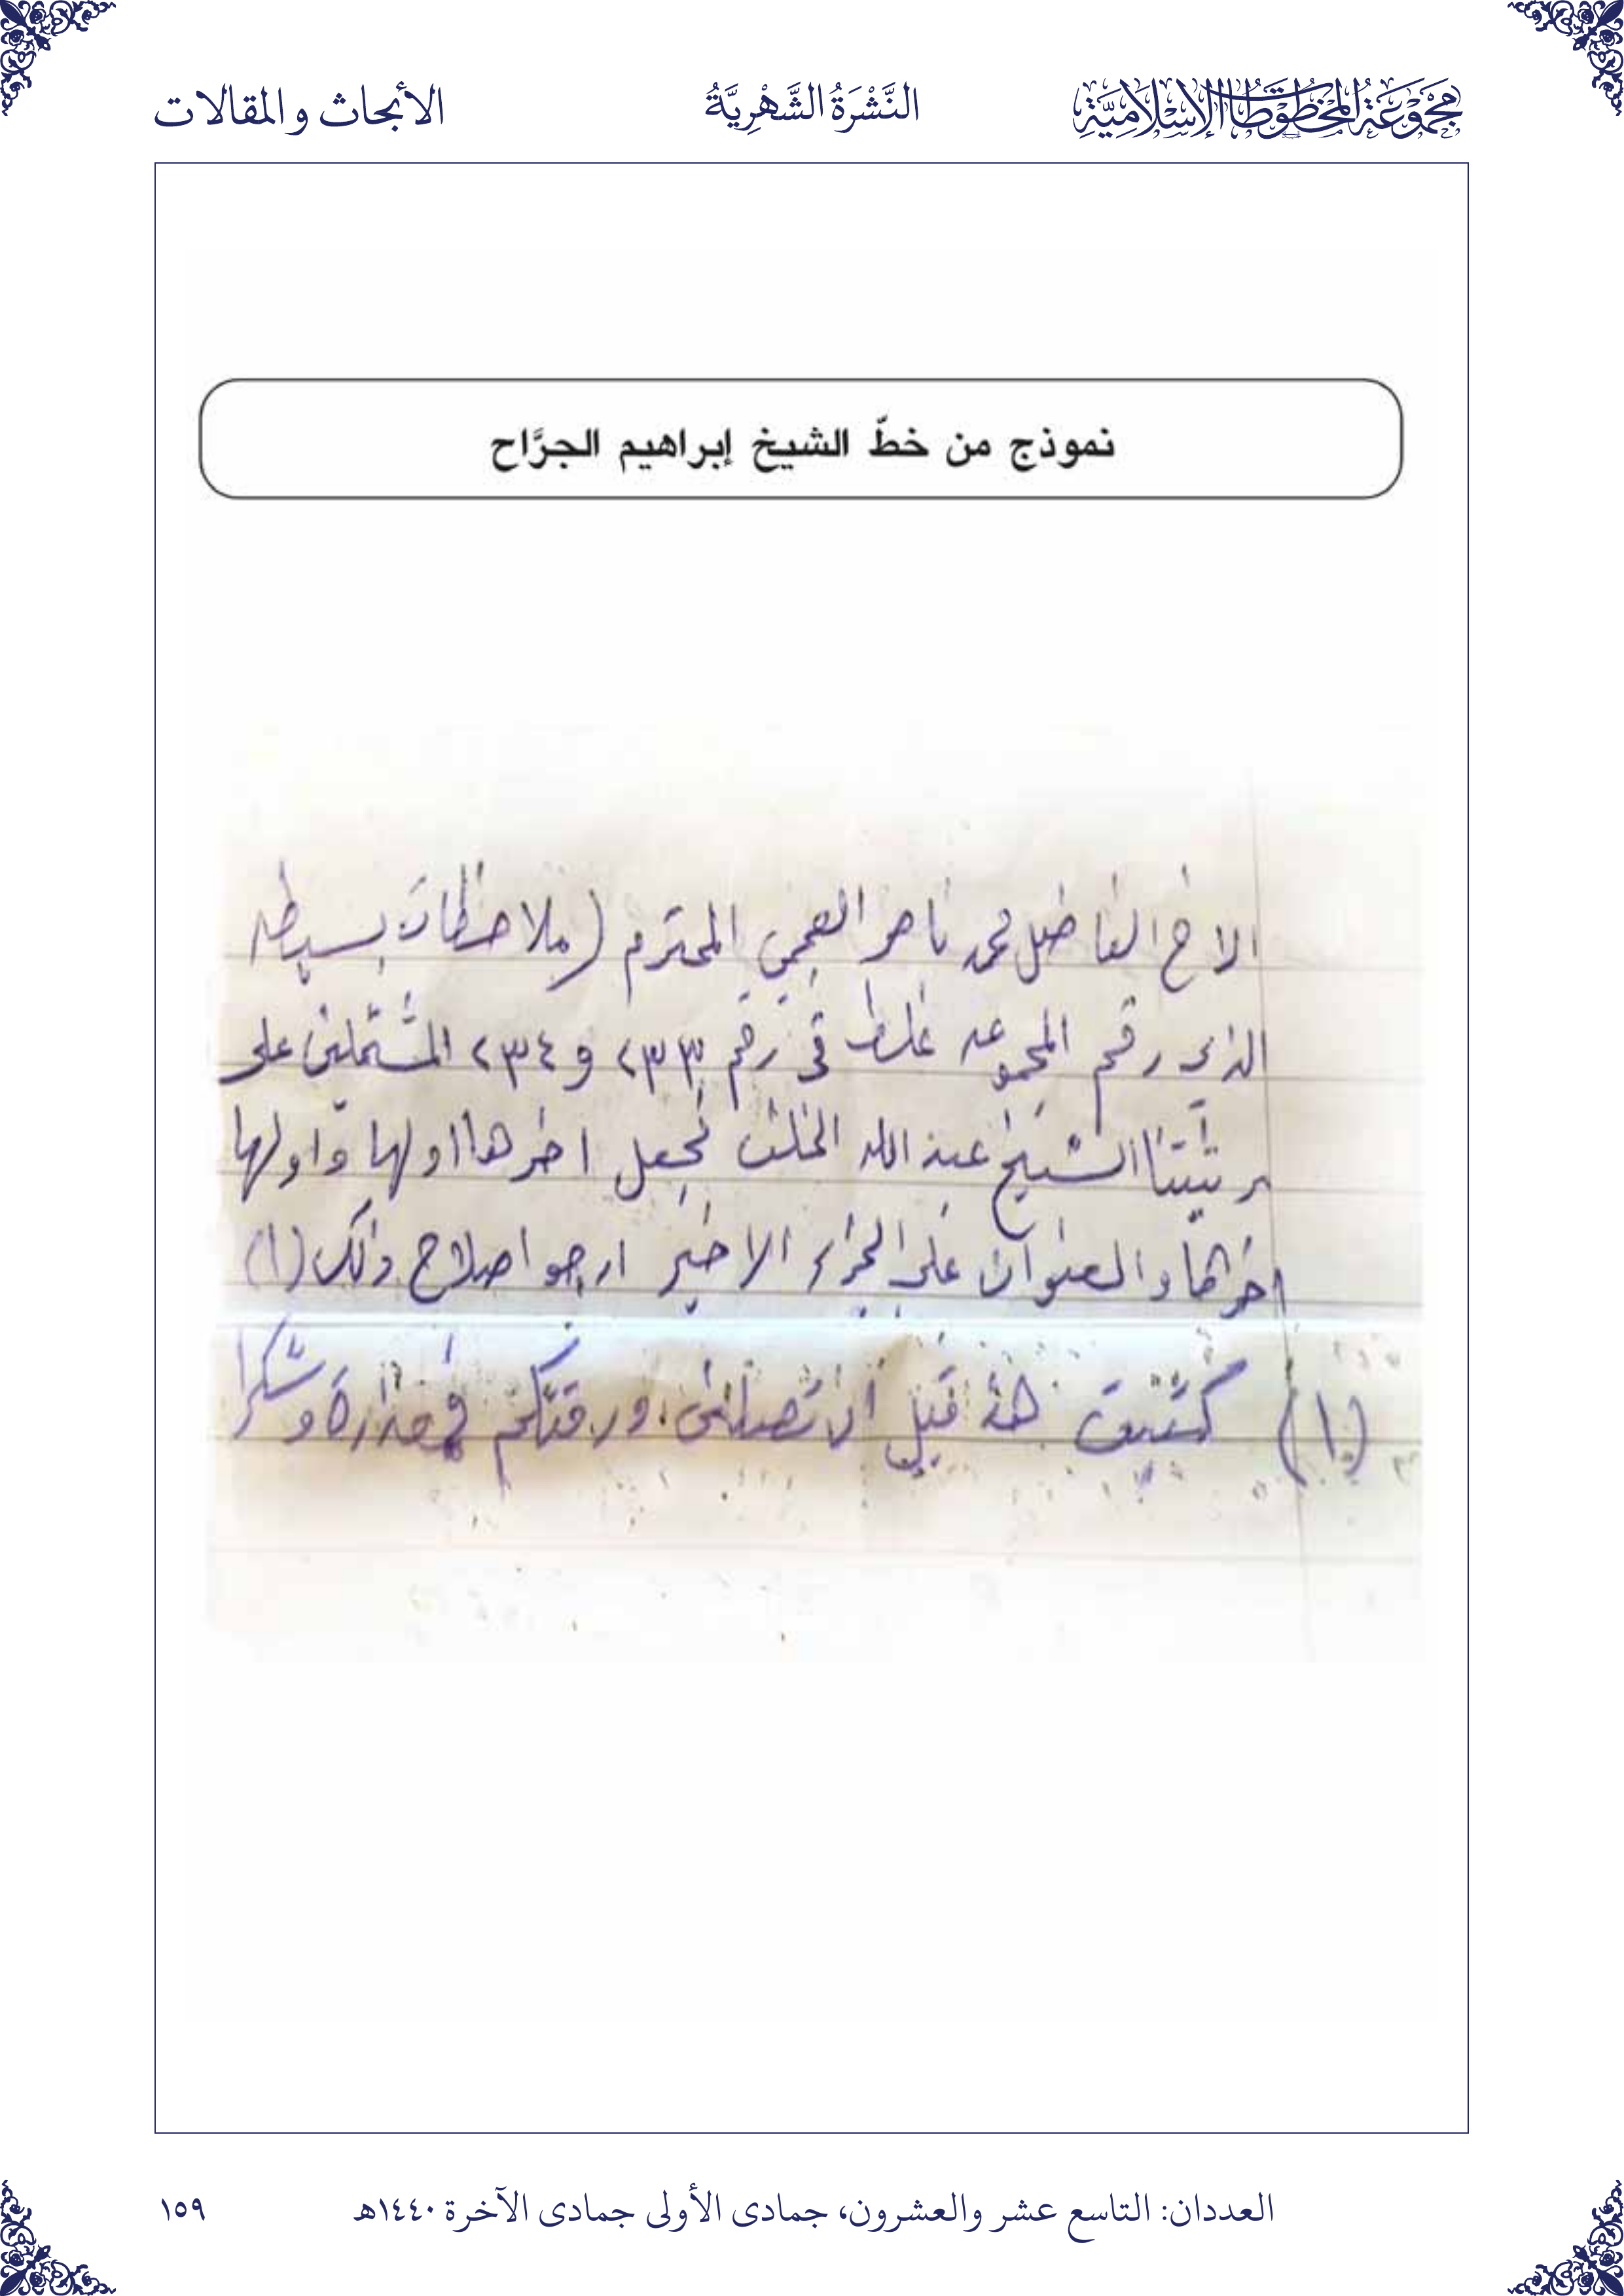 مجموعة المخطوطات الإسلامية
النَّشْرَةُ الشَّهْرِيَّةُ
الأبحاث والمقالات
نموذج من خطّ الشيخ إبراهيم الجرَّاح
الاخ الفاضل محمد ناصر العجمي المحترم (ملاحظات بسيطه
الذي رقم المجموعه غلط في رقم ٢٣٣ و ٢٣٤ المشتملين على
مرثيتنا الشيخ عبد الله الخلف فجعل اخرها اولها واولها
اخراها والعنوان على الجزء الاخير ارجو اصلاح ذلك (١)
(١) كتبت هذه قبل أن تصلني ورقتكم وشكرا
العددان: التاسع عشر والعشرون، جمادى الأولى جمادى الآخرة ١٤٤٠هـ
١٥٩